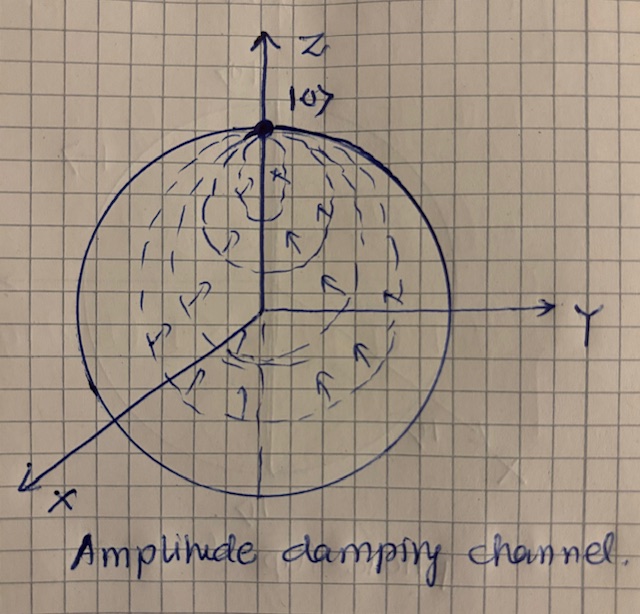 Z
|0>
Y
X
Amplitude damping channel.